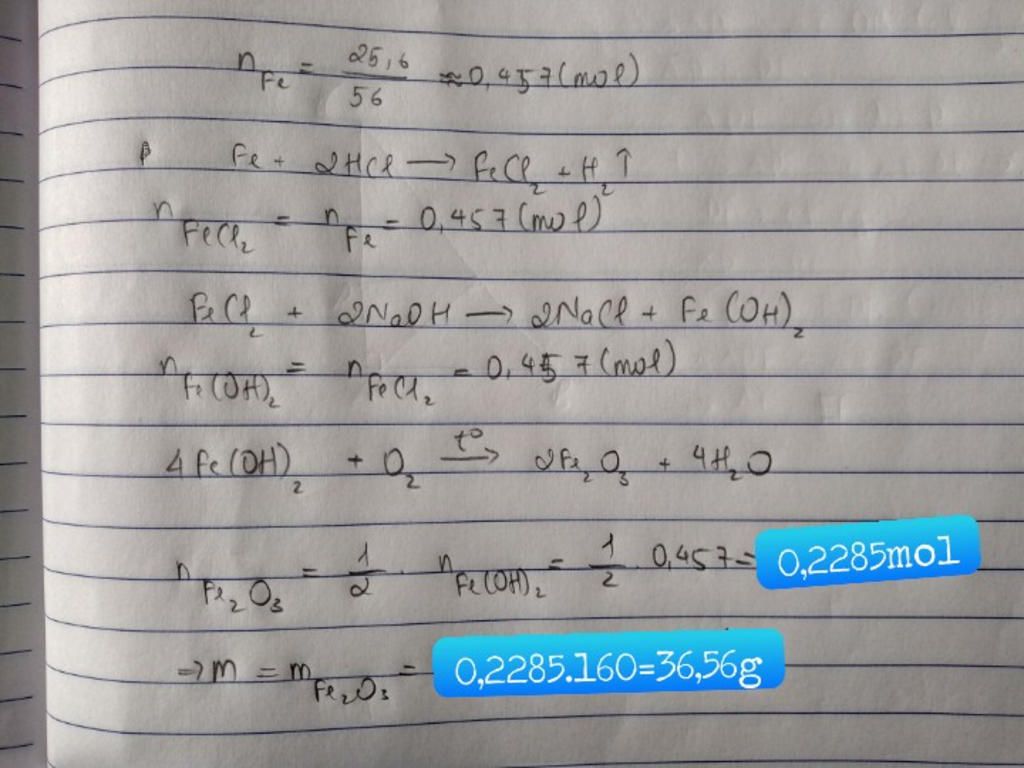 n Fe = 25,6/56 ≈ 0,457 (mol)
Fe + 2HCl → FeCl₂ + H₂↑
n FeCl₂ = n Fe = 0,457 (mol)
FeCl₂ + 2NaOH → 2NaCl + Fe(OH)₂
n Fe(OH)₂ = n FeCl₂ = 0,457 (mol)
4Fe(OH)₂ + O₂ t° → 2Fe₂O₃ + 4H₂O
n Fe₂O₃ = 1/2 . n Fe(OH)₂ = 1/2 . 0,457 = 0,2285mol
⇒ m = m Fe₂O₃ = 0,2285.160=36,56g